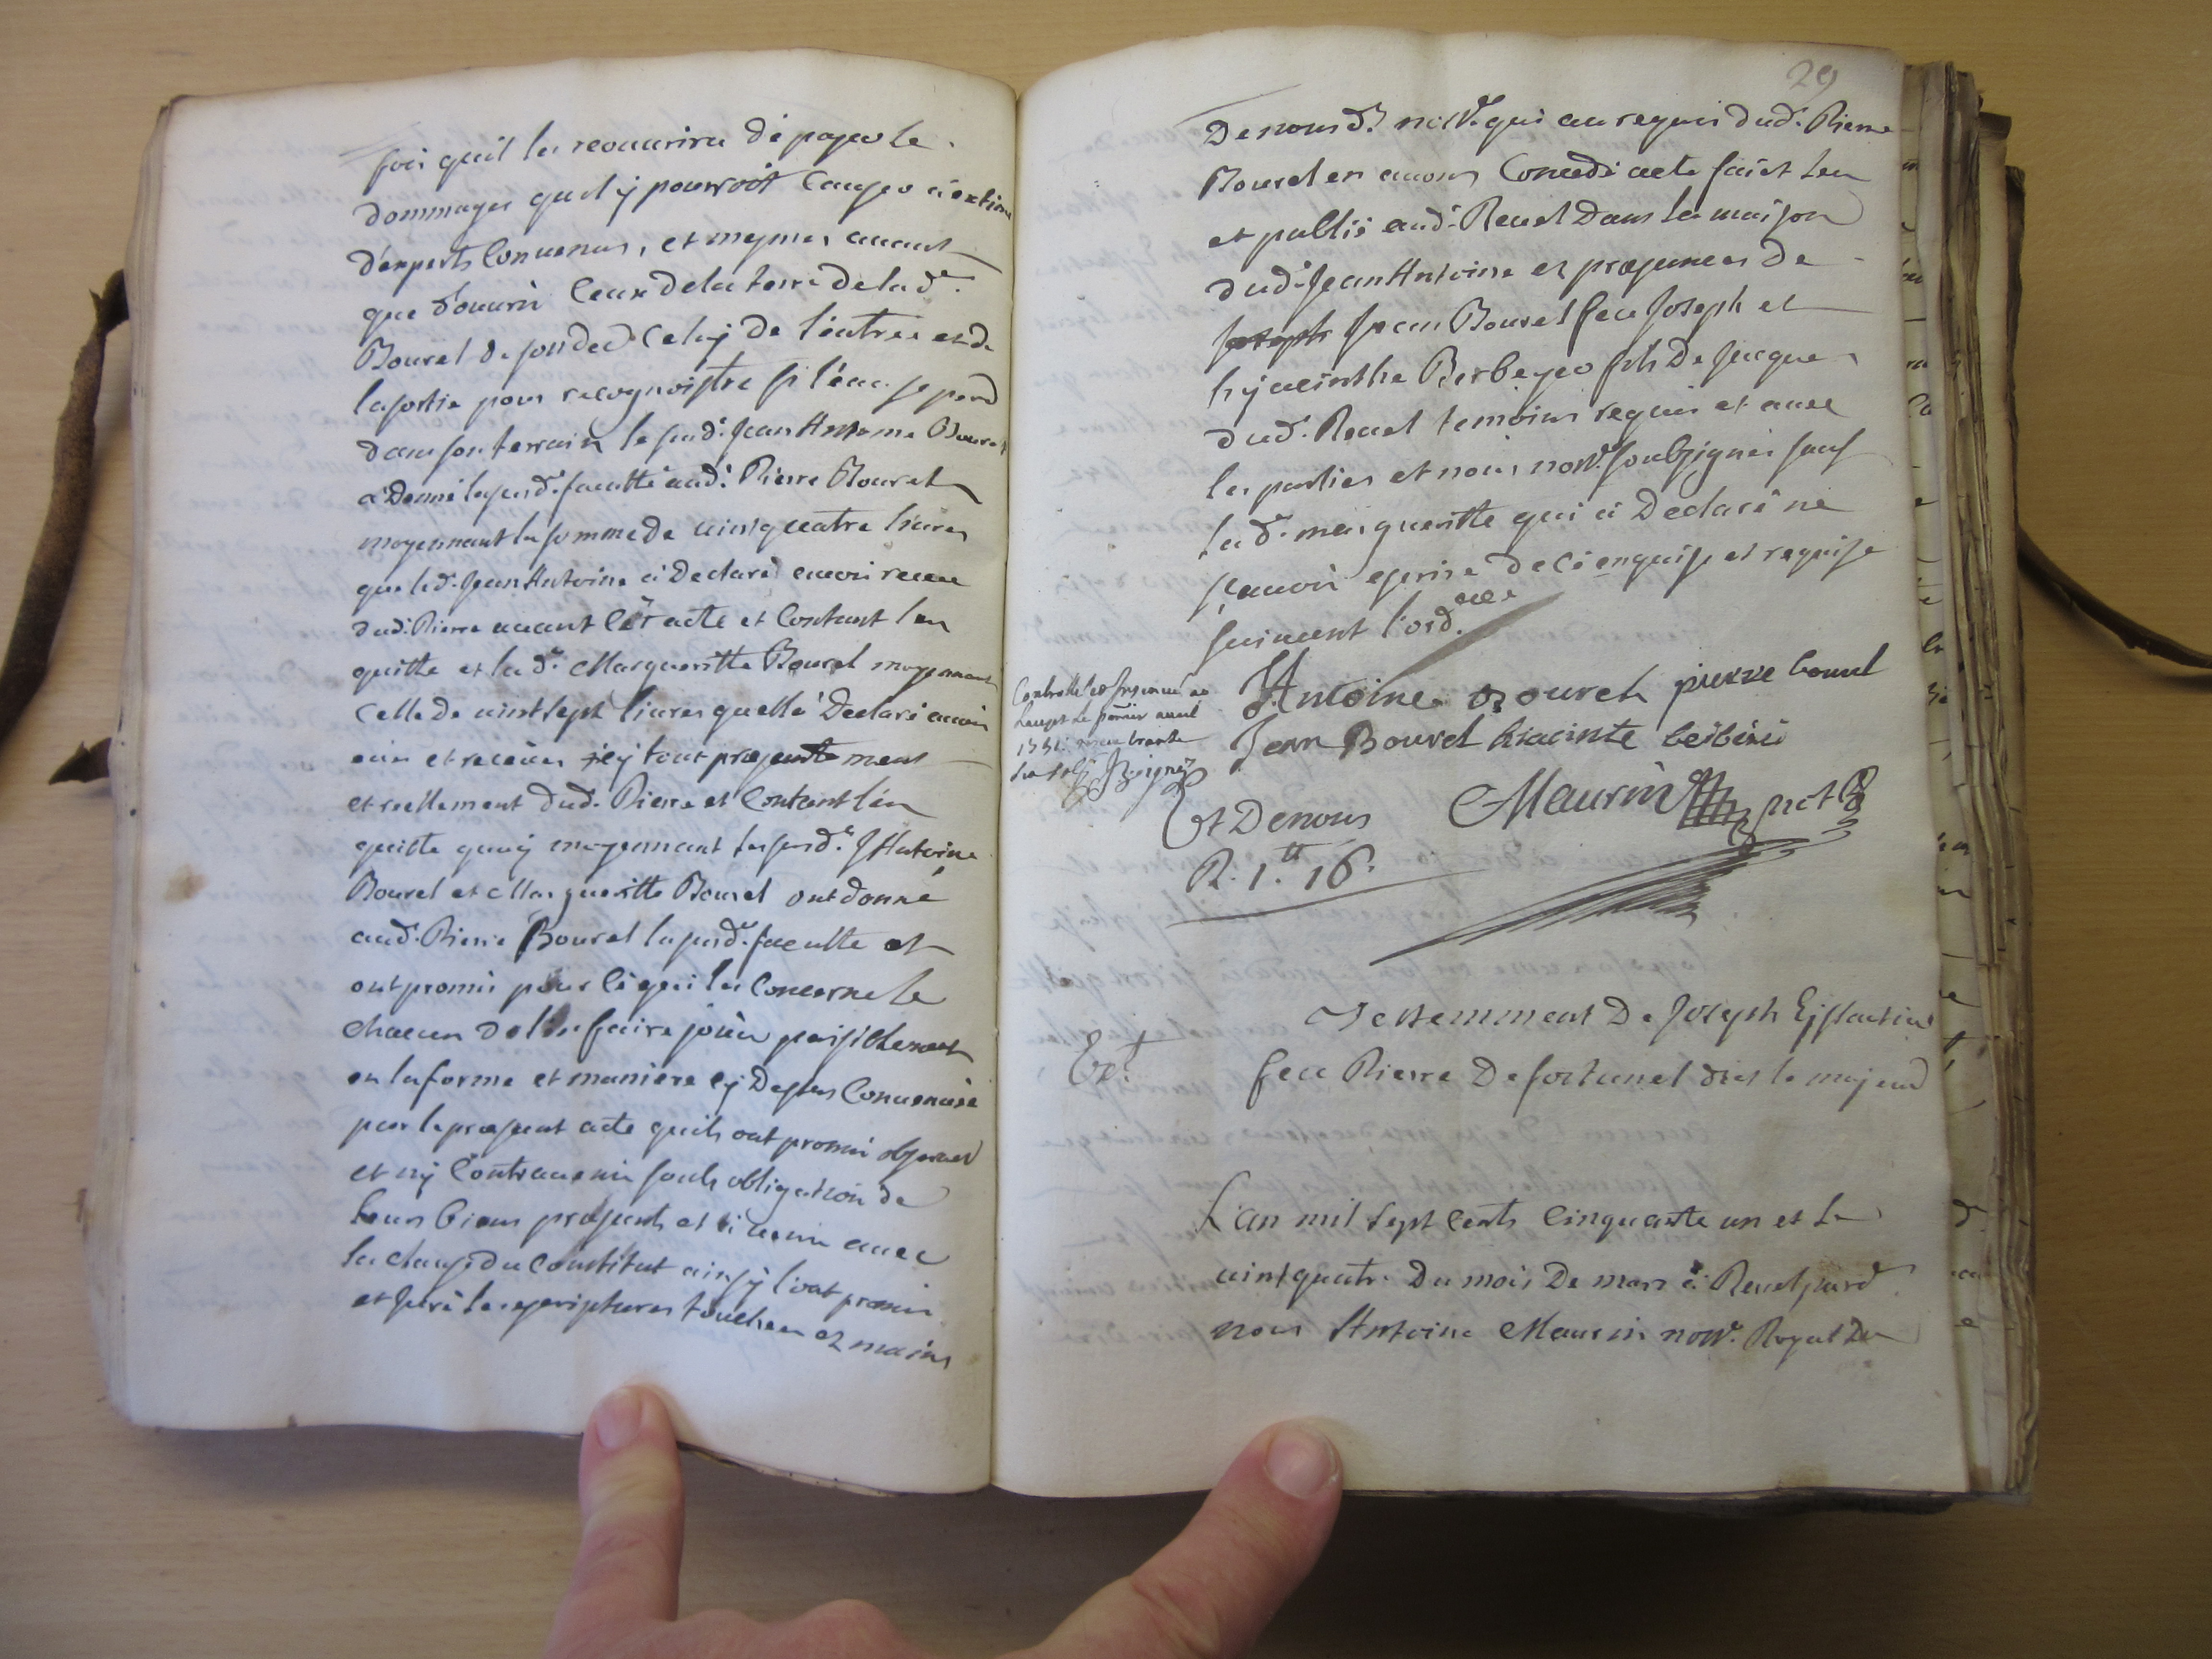 fois quil les reouurira de payer le
dommages quil y pourroit Causer a extime
d'experts Conuenus, et mesmes auant
que d'ouurir Ceux de la terre de lad.e
Bourel de sonder Celuy de l'entrée et de
la sortie pour recognoistre si l'eau se perd
dans son terrain le susd. Jean Antoine Bourel
a Donné la susd. faculté aud. Pierre Bourel
moyennant la somme de uint quatre liures
que led. Jean Antoine a Declaré auoir receu
dud. Pierre auant Cet acte et Contant l'en
quitte et lad.e Margueritte Bourel moyennant
Celle de uint sept liures quelle a Declaré auoir
eües et receües icy tout presentement
et reellement dud. Pierre et Contant l'en
quitte quoy moyennant les susd.s J Antoine
Bourel et Margueritte Bourel ont donné
aud. Pierre Bourel la susd.e faculte et
ont promis pour Ce qui les Concerne le
chacun de l'en faire joüir paisiblement
en la forme et maniere cy Dessus Conuenüe
par le present acte quils ont promis obseruer
et ny Contreuenir soubs obligation de
leurs biens presents et a uenir auec
la clause du Constitut ainsy l'ont promis
et Juré les escriptures touchees ez mains
29
De nous d. not.re qui au requis dud. Pierre
Bourel en auons Concedé acte fait leu
et publié aud. Reuel Dans la maison
dud. Jean Antoine ez presences de
Joseph Jean Bourel feu Joseph et
hyacinthe Berbeyer fils De Jacques
dud. Reuel temoins requis et auec
les parties et nous not.re soubsignés sauf
lad.e margueritte qui a Declaré ne
sçauoir escrire de Ce enquise et requise
suiuant l'ord.ance
Antoine Bourel pierre bourel
Jean Bourel hiacinte
Controllé et Insinué au
Lauzet le premier auril
1751
Et De nous Maurin not.re
R. 1.tt 16.
Testemment De Joseph
feu Pierre De fortunel dict le majeur
Ex.t
L'an mil sept Cents Cinquante un et le
uint quatre Du mois De mars a Reuel pard.
nous Antoine Maurin not.re Royal Du